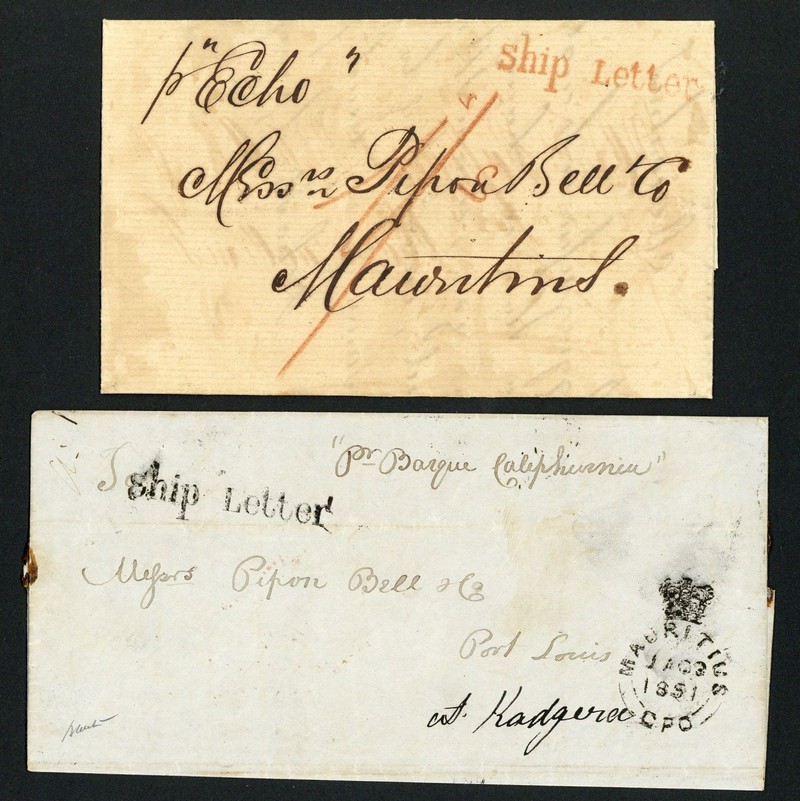 pr "Echo"
Ship Letter
Messrs Pipon Bell & Co
Mauritius.
"Pr Barque Calephurnia"
Ship Letter
Messrs Pipon Bell & Co
Port Louis
at Kadgeree
MAURITIUS
1851
GPO